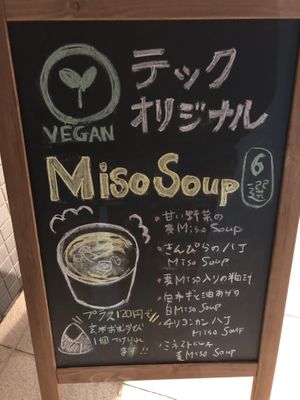 VEGAN
テック
オリジナル
Miso Soup
6
・甘い野菜の
麦Miso Soup
・きんぴらの八丁
Miso Soup
・麦Miso入りの粕汁
・白ねぎと油あげの
白Miso Soup
・チリコンカン八丁
Miso Soup
・ミネストローネ
麦Miso Soup
プラス120円で
玄米おむすび
1個つけられ
ます!!